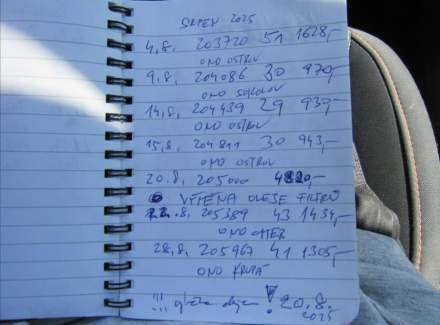 SRPEN 2025
4.8. 203720 51 1628,-
ONO OSTROV
9.8. 204086 30 970,-
ONO SOKOLOV
14.8. 204439 29 937,-
ONO OSTROV
15.8. 204811 30 943,-
ONO OSTROV
20.8. 205000
VÝMĚNA OLEJE FILTRŮ
22.8. 205389 43 1434,-
ONO CHEB
28.8. 205967 41 1305,-
ONO
!!! ! 20.8.
2025